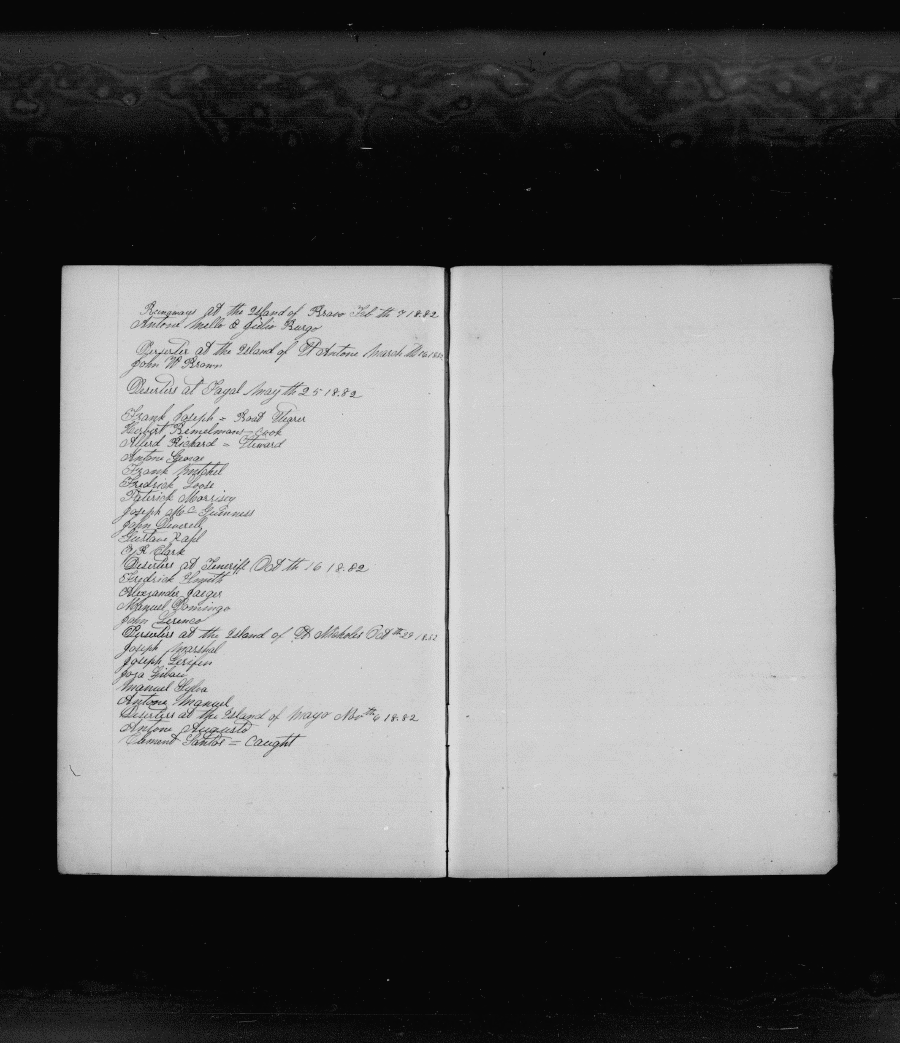 Runaways at the Island of Bravo Feb th 7 1882
Antone Mello & Julio Burgo
Deserter at the Island of St Antone March th
John W Brown
Deserters at Fayal May th 25 1882
Frank Joseph = Boat Stearer
Herbert Bemelmans = Cook
Alferd Richard = Steward
Antone George
Frank Mitchel
Fredrick Loose
Paterick Morrisey
Joseph Mc Guinness
John Deverell
Gustave
Clark
Deserters at Teneriff Oct th 16 1882
Fredrick Smith
Alexander Jaeger
Manuel Domingo
John Lorenco
Deserters at the Island of St Nicholes Oct th 29 1882
Joseph Marshal
Joseph
Manuel Sylva
Antone Manuel
Deserters at the Island of Mayo Nov th 6 1882
Antone Augusto
Santos = Caught